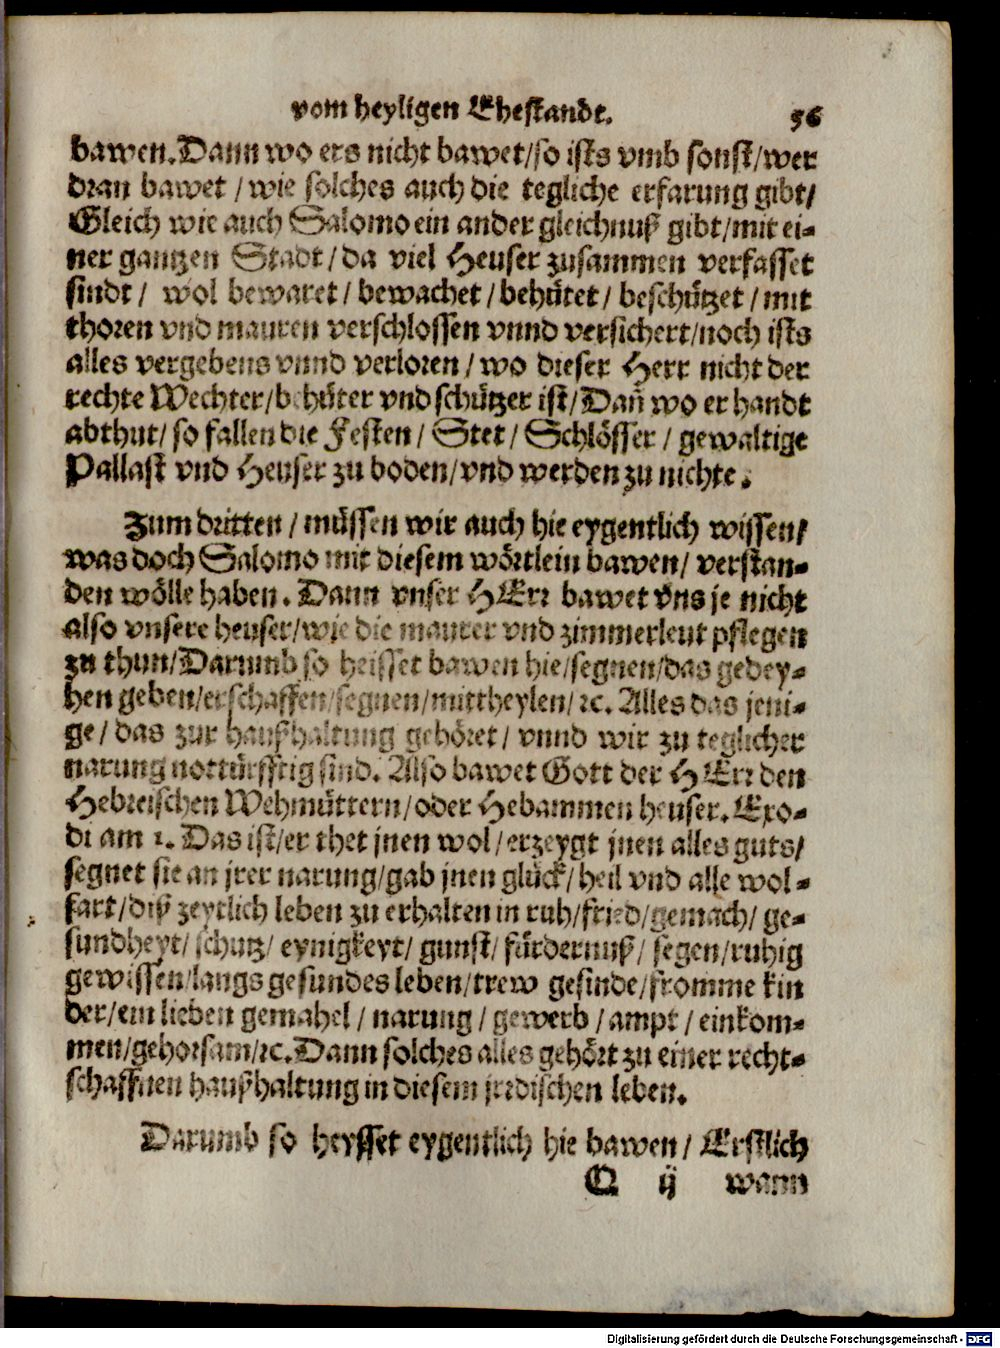 vom heyligen Ehestandt. 56
bawen. Dann wo ers nicht bawet/so ists vmb sonst/wer
dran bawet / wie solches auch die tegliche erfarung gibt/
Gleich wie auch Salomo ein ander gleichnuß gibt/mit ei-
ner gantzen Stadt / da viel Heuser zusammen verfasset
sindt / wol bewaret / bewachet / behütet / beschützet / mit
thoren vnd mauren verschlossen vnnd versichert/noch ists
alles vergebens vnnd verloren / wo dieser Herr nicht der
rechte Wechter/behüter vnd schützer ist/Dañ wo er handt
abthut/ so fallen die Festen / Stet / Schlösser / gewaltige
Pallast vnd Heuser zu boden/vnd werden zu nichte.
Zum dritten / müssen wir auch hie eygentlich wissen/
was doch Salomo mit diesem wörtlein bawen/ verstan-
den wölle haben. Dann vnser HErr bawet vns je nicht
also vnsere heuser/wie die maurer vnd zimmerleut pflegen
zu thun/Darumb so heisset bawen hie/segnen/das gedey-
hen geben/erschaffen/segnen/mittheylen/ꝛc. Alles das jeni-
ge / das zur haußhaltung gehöret / vnnd wir zu teglicher
narung notturfftig sind. Also bawet Gott der HErr den
Hebreischen Wehmüttern/oder Hebammen heuser. Exo-
di am 1. Das ist/er thet jnen wol/erzeygt jnen alles guts/
segnet sie an jrer narung/gab jnen glück/ heil vnd alle wol-
fart/diß zeytlich leben zu erhalten in ruh/fried/gemach/ ge-
sundheyt/ schutz/ eynigkeyt/ gunst/ fürdernuß/ segen/ruhig
gewissen/langs gesundes leben/trew gesinde/fromme kin
der/ein lieben gemahel / narung / gewerb / ampt / einkom-
men/gehorsam/ꝛc. Dann solches alles gehört zu einer recht-
schaffnen haußhaltung in diesem jrrdischen leben.
Darumb so heysset eygentlich hie bawen/ Erstlich
Q ij wann
Digitalisierung gefördert durch die Deutsche Forschungsgemeinschaft - DFG